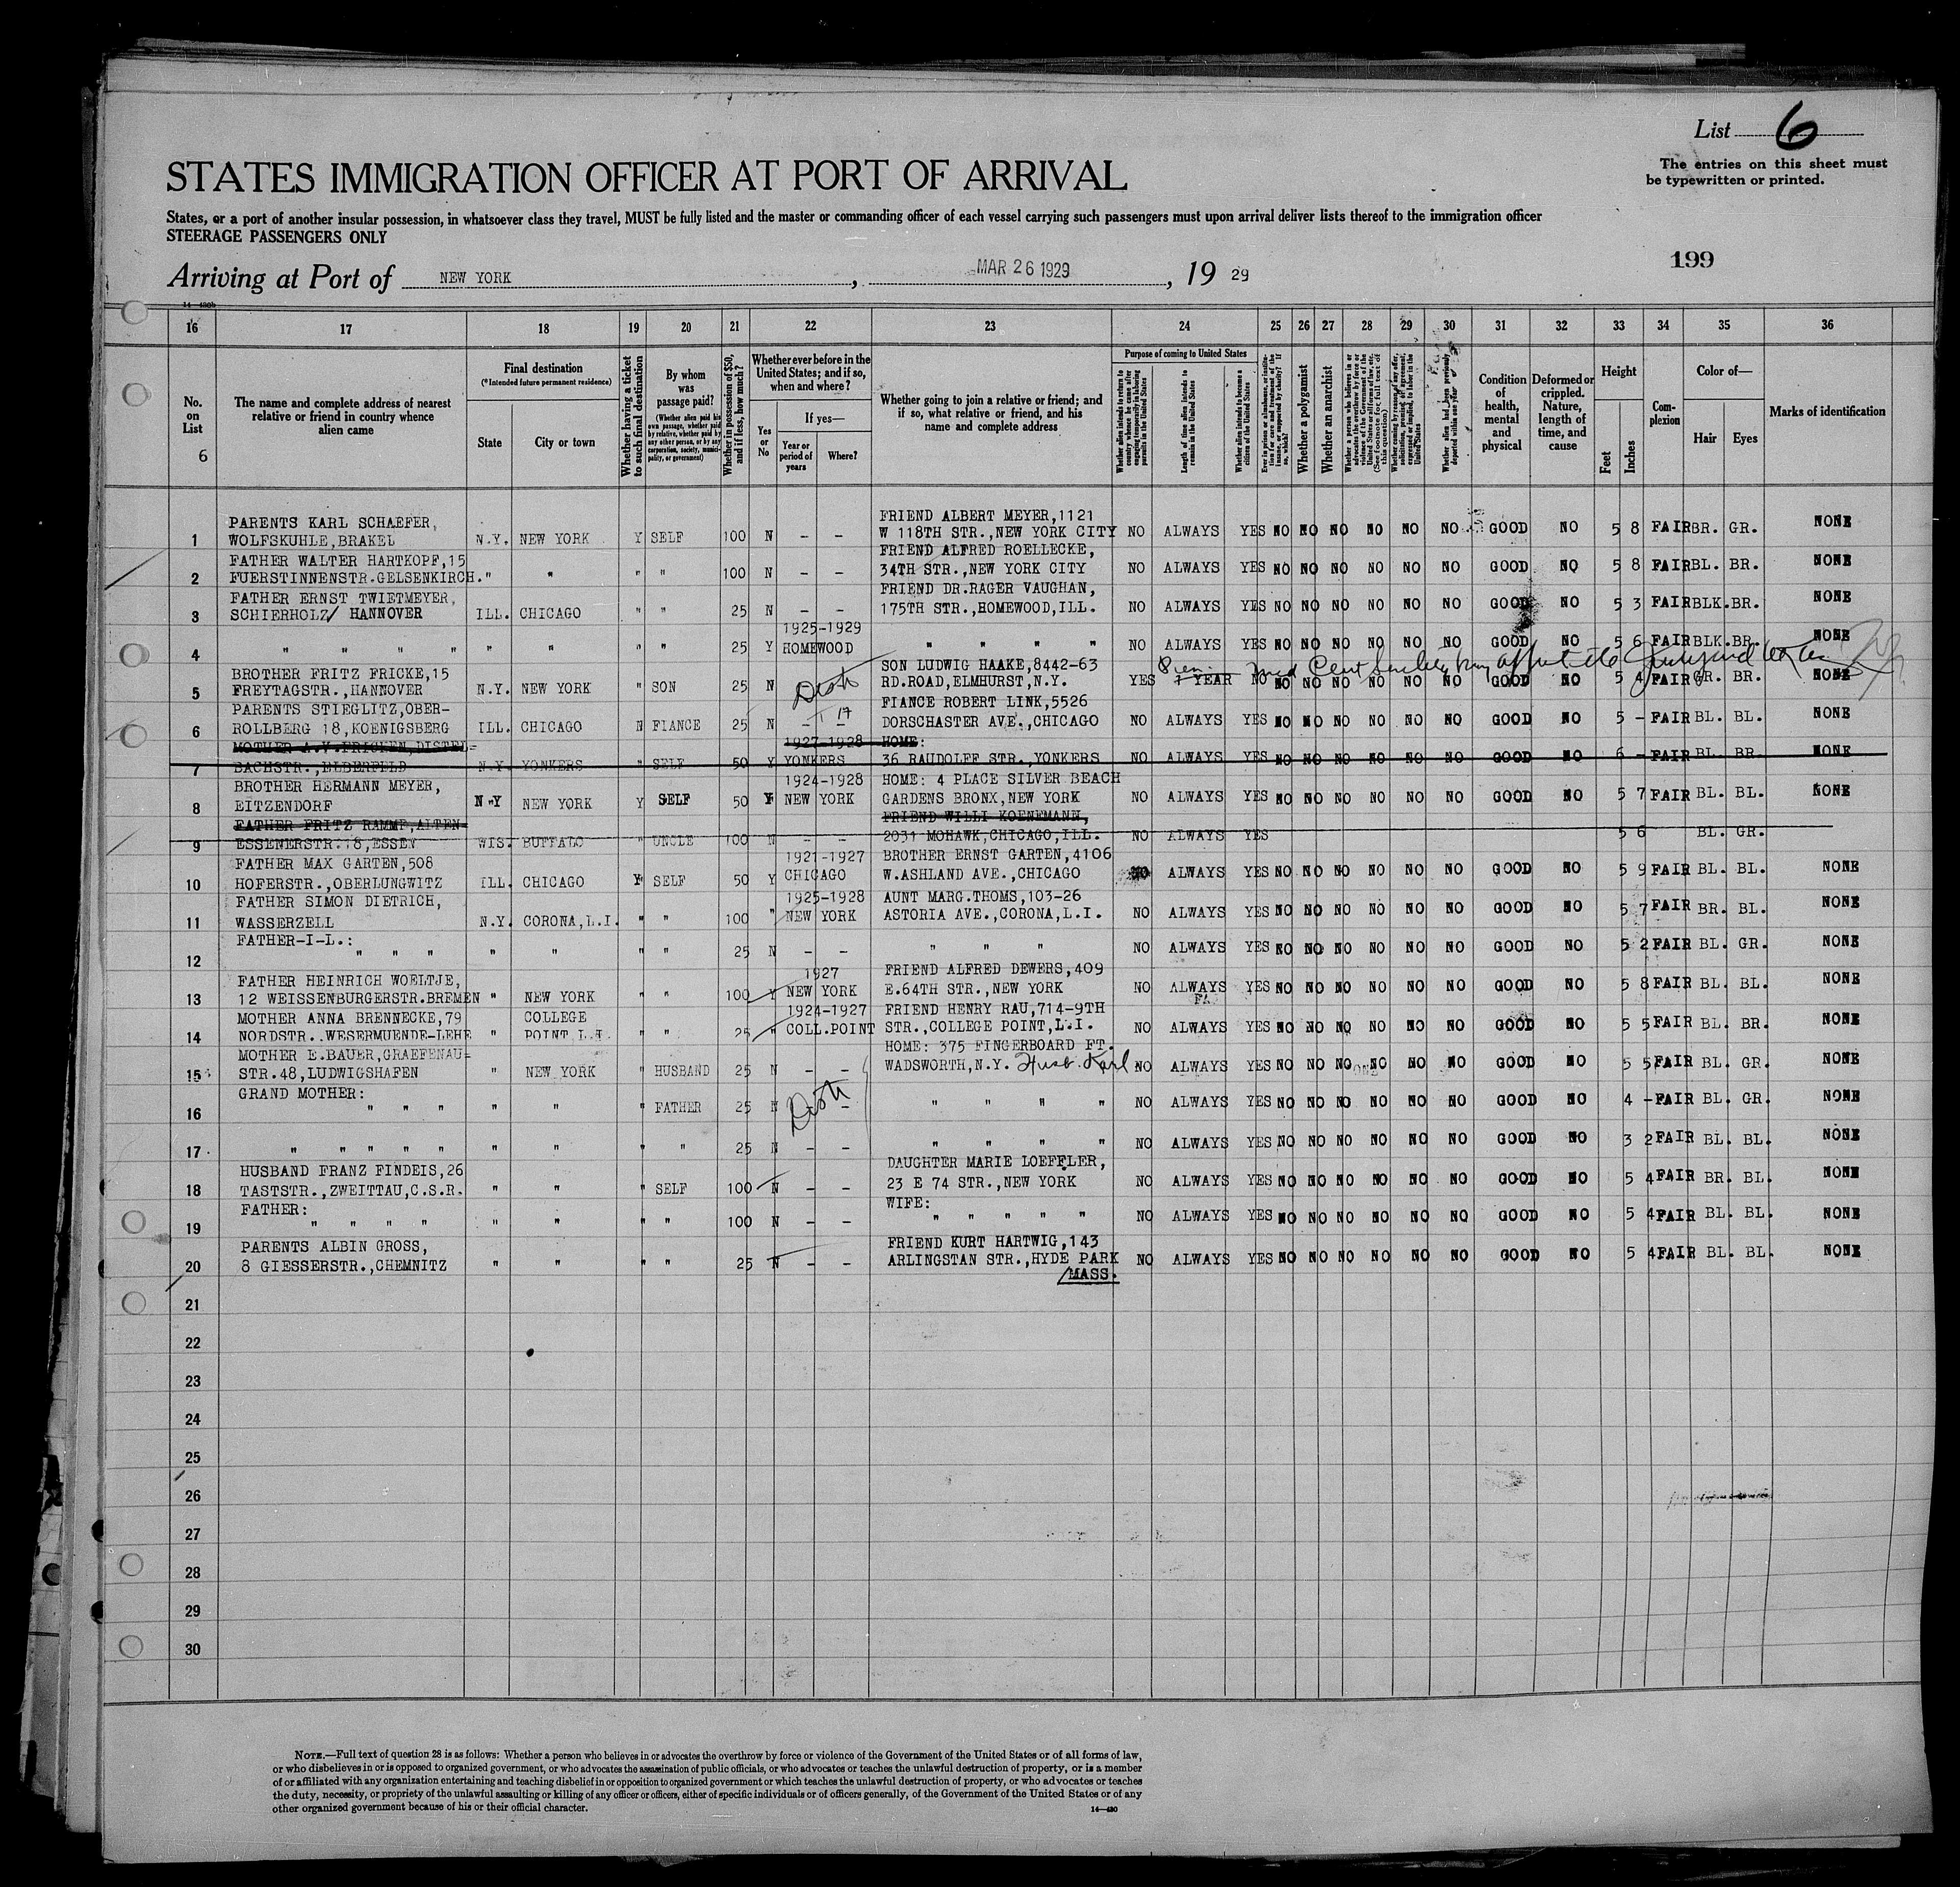 List 6
The entries on this sheet must
be typewritten or printed.
STATES IMMIGRATION OFFICER AT PORT OF ARRIVAL
States, or a port of another insular possession, in whatsoever class they travel, MUST be fully listed and the master or commanding officer of each vessel carrying such passengers must upon arrival deliver lists thereof to the immigration officer
STEERAGE PASSENGERS ONLY
199
Arriving at Port of NEW YORK, MAR 26 1929, 19 29
16 17 18 19 20 21 22 23 24 25 26 27 28 29 30 31 32 33 34 35 36
No. on List
6
The name and complete address of nearest
relative or friend in country whence
alien came
Final destination
(*Intended future permanent residence)
State
City or town
Whether having a ticket
to such final destination
By whom
was
passage paid?
(Whether alien paid his
own passage, whether paid
by relative, whether paid
by any other person, or by any
corporation, society, munici-
pality, or government)
Whether in possession of $50,
and if less, how much?
Whether ever before in the
United States; and if so,
when and where?
Yes
or
No
If yes—
Year or
period of
years
Where?
Whether going to join a relative or friend; and
if so, what relative or friend, and his
name and complete address
Purpose of coming to United States
Whether alien intends to return to
country whence he came after
engaging temporarily in laboring
pursuits in the United States
Length of time alien intends to
remain in the United States
Whether alien intends to become a
citizen of the United States
Whether a polygamist
Whether an anarchist
Condition
of
health,
mental
and
physical
Deformed or
crippled.
Nature,
length of
time, and
cause
Height
Feet
Inches
Com-
plexion
Color of—
Hair
Eyes
Marks of identification
PARENTS KARL SCHAEFER, FRIEND ALBERT MEYER,1121
1 WOLFSKUHLE,BRAKEL N.Y. NEW YORK Y SELF 100 N - - W 118TH STR.,NEW YORK CITY NO ALWAYS YES NO NO NO NO NO NO GOOD NO 5 8 FAIR BR. GR. NONE
FATHER WALTER HARTKOPF,15 FRIEND ALFRED ROELLECKE,
2 FUERSTINNENSTR.GELSENKIRCH. " " " " 100 N - - 34TH STR.,NEW YORK CITY NO ALWAYS YES NO NO NO NO NO NO GOOD NO 5 8 FAIR BL. BR. NONE
FATHER ERNST TWIETMEYER, FRIEND DR.RAGER VAUGHAN,
3 SCHIERHOLZ/ HANNOVER ILL. CHICAGO " " 25 N - - 175TH STR.,HOMEWOOD,ILL. NO ALWAYS YES NO NO NO NO NO NO GOOD NO 5 3 FAIR BLK. BR. NONE
1925-1929
4 " " " " " " " " 25 Y HOMEWOOD " " " " NO ALWAYS YES NO NO NO NO NO NO GOOD NO 5 6 FAIR BLK. BR. NONE
BROTHER FRITZ FRICKE,15 SON LUDWIG HAAKE,8442-63
5 FREYTAGSTR.,HANNOVER N.Y. NEW YORK " SON 25 N RD.ROAD,ELMHURST,N.Y. YES 1 YEAR NO NO NO NO NO NO NO GOOD NO 5 4 FAIR GR. BR. NONE
PARENTS STIEGLITZ,OBER- FIANCE ROBERT LINK,5526
6 ROLLBERG 18,KOENIGSBERG ILL. CHICAGO N FIANCE 25 N - - DORSCHASTER AVE.,CHICAGO NO ALWAYS YES NO NO NO NO NO NO GOOD NO 5 - FAIR BL. BL. NONE
MOTHER A.V.FRICKEN,DISTEL- 1927-1928 HOME:
7 BACHSTR.,ELBERFELD N.Y. YONKERS " SELF 50 Y YONKERS 36 RAUDOLFF STR.,YONKERS NO ALWAYS YES NO NO NO NO NO NO GOOD NO 6 - FAIR BL. BR. NONE
BROTHER HERMANN MEYER, 1924-1928 HOME: 4 PLACE SILVER BEACH
8 EITZENDORF N.Y NEW YORK Y SELF 50 Y NEW YORK GARDENS BRONX,NEW YORK NO ALWAYS YES NO NO NO NO NO NO GOOD NO 5 7 FAIR BL. BL. NONE
FATHER FRITZ RAMME,ALTEN- FRIEND WILLI KOENEMANN,
9 ESSENERSTR.18,ESSEN WIS. BUFFALO " UNCLE 100 N - - 2031 MOHAWK,CHICAGO,ILL. NO ALWAYS YES 5 6 BL. GR.
FATHER MAX GARTEN,508 1921-1927 BROTHER ERNST GARTEN,4106
10 HOFERSTR.,OBERLUNGWITZ ILL. CHICAGO Y SELF 50 Y CHICAGO W.ASHLAND AVE.,CHICAGO NO ALWAYS YES NO NO NO NO NO NO GOOD NO 5 9 FAIR BL. BL. NONE
FATHER SIMON DIETRICH, 1925-1928 AUNT MARG.THOMS,103-26
11 WASSERZELL N.Y. CORONA,L.I. " " 100 " NEW YORK ASTORIA AVE.,CORONA,L.I. NO ALWAYS YES NO NO NO NO NO NO GOOD NO 5 7 FAIR BR. BL. NONE
FATHER-I-L.:
12 " " " " " " " 25 N - - " " " NO ALWAYS YES NO NO NO NO NO NO GOOD NO 5 2 FAIR BL. GR. NONE
FATHER HEINRICH WOELTJE, 1927 FRIEND ALFRED DEWERS,409
13 12 WEISSENBURGERSTR.BREMEN " NEW YORK " " 100 Y NEW YORK E.64TH STR.,NEW YORK NO ALWAYS YES NO NO NO NO NO NO GOOD NO 5 8 FAIR BL. BL. NONE
MOTHER ANNA BRENNECKE,79 COLLEGE 1924-1927 FRIEND HENRY RAU,714-9TH
14 NORDSTR..WESERMUENDE-LEHE " POINT L.I. " " 25 " COLL.POINT STR.,COLLEGE POINT,L.I. NO ALWAYS YES NO NO NO NO NO NO GOOD NO 5 5 FAIR BL. BR. NONE
MOTHER E.BAUER,GRAEFENAU- HOME: 375 FINGERBOARD FT.
15 STR.48,LUDWIGSHAFEN " NEW YORK " HUSBAND 25 N - - WADSWORTH,N.Y. Husb. Karl NO ALWAYS YES NO NO NO NO NO NO GOOD NO 5 5 FAIR BL. GR. NONE
GRAND MOTHER:
16 " " " " " " FATHER 25 N - - " " " " NO ALWAYS YES NO NO NO NO NO NO GOOD NO 4 - FAIR BL. GR. NONE
17 " " " " " " " " " 25 N - - " " " " NO ALWAYS YES NO NO NO NO NO NO GOOD NO 3 2 FAIR BL. BL. NONE
HUSBAND FRANZ FINDEIS,26 DAUGHTER MARIE LOEFFLER,
18 TASTSTR.,ZWEITTAU,C.S.R. " " " SELF 100 N - - 23 E 74 STR.,NEW YORK NO ALWAYS YES NO NO NO NO NO NO GOOD NO 5 4 FAIR BR. BL. NONE
FATHER: WIFE:
19 " " " " " " " " 100 N - - " " " " " NO ALWAYS YES NO NO NO NO NO NO GOOD NO 5 4 FAIR BL. BL. NONE
PARENTS ALBIN GROSS, FRIEND KURT HARTWIG,143
20 8 GIESSERSTR.,CHEMNITZ " " " " 25 N - - ARLINGSTAN STR.,HYDE PARK NO ALWAYS YES NO NO NO NO NO NO GOOD NO 5 4 FAIR BL. BL. NONE
MASS.
21
22
23
24
25
26
27
28
29
30
NOTE.—Full text of question 28 is as follows: Whether a person who believes in or advocates the overthrow by force or violence of the Government of the United States or of all forms of law,
or who disbelieves in or is opposed to organized government, or who advocates the assassination of public officials, or who advocates or teaches the unlawful destruction of property, or is a member
of or affiliated with any organization entertaining and teaching disbelief in or opposition to organized government or which teaches the unlawful destruction of property, or who advocates or teaches
the duty, necessity, or propriety of the unlawful assaulting or killing of any officer or officers, either of specific individuals or of officers generally, of the Government of the United States or of any
other organized government because of his or their official character.
14—430